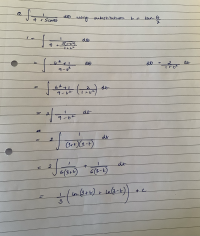 ∫ 1/(4 + 5cosθ) dθ using substitution t = tan θ/2
I = ∫ 1/(4 + 5(1-t²)/(1+t²)) dθ
= ∫ (t²+1)/(9-t²) dθ dθ = 2/(1+t²) dt
= ∫ (t²+1)/(9-t²) (2/(1+t²)) dt
= 2∫ 1/(9-t²) dt
= 2∫ 1/((3+t)(3-t)) dt
= 2∫ 1/(6(3+t)) + 1/(6(3-t)) dt
= 1/3 (ln(3+t) - ln(3-t)) + c